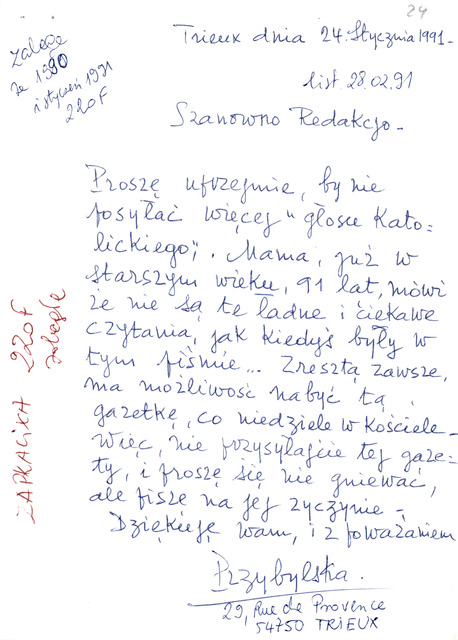 24
Trieux dnia 24. Stycznia 1991.-
zalega
ze 1990
i styczeń 1991
220F
list 28.02.91
Szanowno Redakcjo.-
Proszę uprzejmie, by nie
posyłać więcej "głosu Kato=
lickiego",. Mama, już w
starszym wieku, 91 lat, mówi
że nie są te ładne i ciekawe
czytania, jak kiedyś były w
tym piśmie... Zresztą zawsze,
ma możliwość nabyć tą
gazetkę, co niedziele w Kościele-
więc, nie przysyłajcie tej gaze=
ty, i proszę się nie gniewać,
ale piszę na jej zyczynie-
Dziękuję wam, i z poważaniem
Przybylska.
29, Rue de Provence
54750 TRIEUX
ZAPŁACIŁA 220F
zaległe